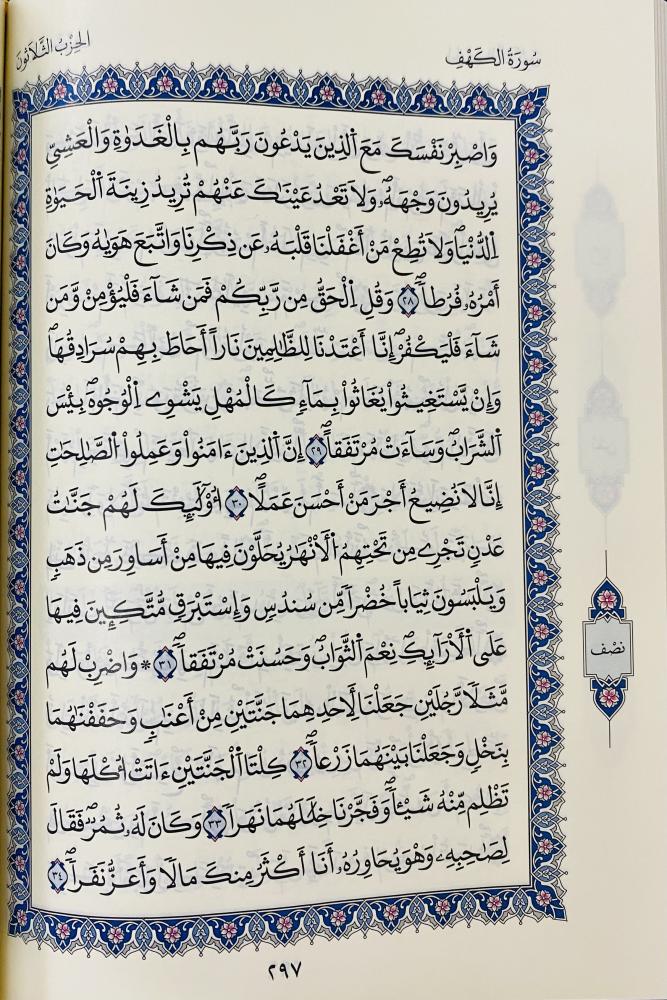 سُورَةُ الكَهْفِ
الحِزْبُ الثَّلَاثُونَ
وَاصْبِرْ نَفْسَكَ مَعَ اَ۬لذِينَ يَدْعُونَ رَبَّهُم بِالْغَدَوٰةِ وَالْعَشِيِّ
يُرِيدُونَ وَجْهَهُۥۖ وَلَا تَعْدُ عَيْنَٰكَ عَنْهُمْ تُرِيدُ زِينَةَ اَ۬لْحَيَوٰةِ
اِ۬لدُّنْيَاۖ وَلَا تُطِعْ مَنْ أَغْفَلْنَا قَلْبَهُۥ عَن ذِكْرِنَا وَاتَّبَعَ هَوَيٰهُ وَكَانَ
أَمْرُهُۥ فُرُطاٗۖ ٢٨ وَقُلِ اِ۬لْحَقُّ مِن رَّبِّكُمْ فَمَن شَآءَ فَلْيُؤْمِنْ وَّمَن
شَآءَ فَلْيَكْفُرِۖ اِنَّا أَعْتَدْنَا لِلظَّٰلِمِينَ نَاراً أَحَاطَ بِهِمْ سُرَادِقُهَاۖ
وَإِنْ يَّسْتَغِيثُواْ يُغَاثُواْ بِمَآءٖ كَالْمُهْلِ يَشْوِے اِ۬لْوُجُوهَۖ بِيسَ
اَ۬لشَّرَابُۖ وَسَآءَتْ مُرْتَفَقاًۖ ٢٩ اِنَّ اَ۬لذِينَ ءَامَنُواْ وَعَمِلُواْ اُ۬لصَّٰلِحَٰتِ
إِنَّا لَا نُضِيعُ أَجْرَ مَنْ أَحْسَنَ عَمَلاًۖ ٣٠ ا۟وْلَٰٓئِكَ لَهُمْ جَنَّٰتُ
عَدْنٖ تَجْرِے مِن تَحْتِهِمُ اُ۬لَانْهَٰرُ يُحَلَّوْنَ فِيهَا مِنَ اَسَاوِرَ مِن ذَهَبٖ
وَيَلْبَسُونَ ثِيَاباً خُضْراٗ مِّن سُندُسٖ وَإِسْتَبْرَقٖ مُّتَّكِـِٕينَ فِيهَا
عَلَى اَ۬لَارَآئِكِۖ نِعْمَ اَ۬لثَّوَابُۖ وَحَسُنَتْ مُرْتَفَقاٗۖ ٣١ * وَاضْرِبْ لَهُم
مَّثَلاٗ رَّجُلَيْنِ جَعَلْنَا لِأَحَدِهِمَا جَنَّتَيْنِ مِنَ اَعْنَٰبٖ وَحَفَفْنَٰهُمَا
بِنَخْلٖ وَجَعَلْنَا بَيْنَهُمَا زَرْعاٗۖ ٣٢ كِلْتَا اَ۬لْجَنَّتَيْنِ ءَاتَتُ ا۟كْلَهَا وَلَمْ
تَظْلِم مِّنْهُ شَيْـٔاٗۖ وَفَجَّرْنَا خِلَٰلَهُمَا نَهَراٗ ٣٣ وَكَانَ لَهُۥ ثُمُرٞۖ فَقَالَ
لِصَٰحِبِهِۦ وَهْوَ يُحَاوِرُهُۥ أَنَا أَكْثَرُ مِنكَ مَالاٗ وَأَعَزُّ نَفَراٗۖ ٣٤
نصف
٢٩٧